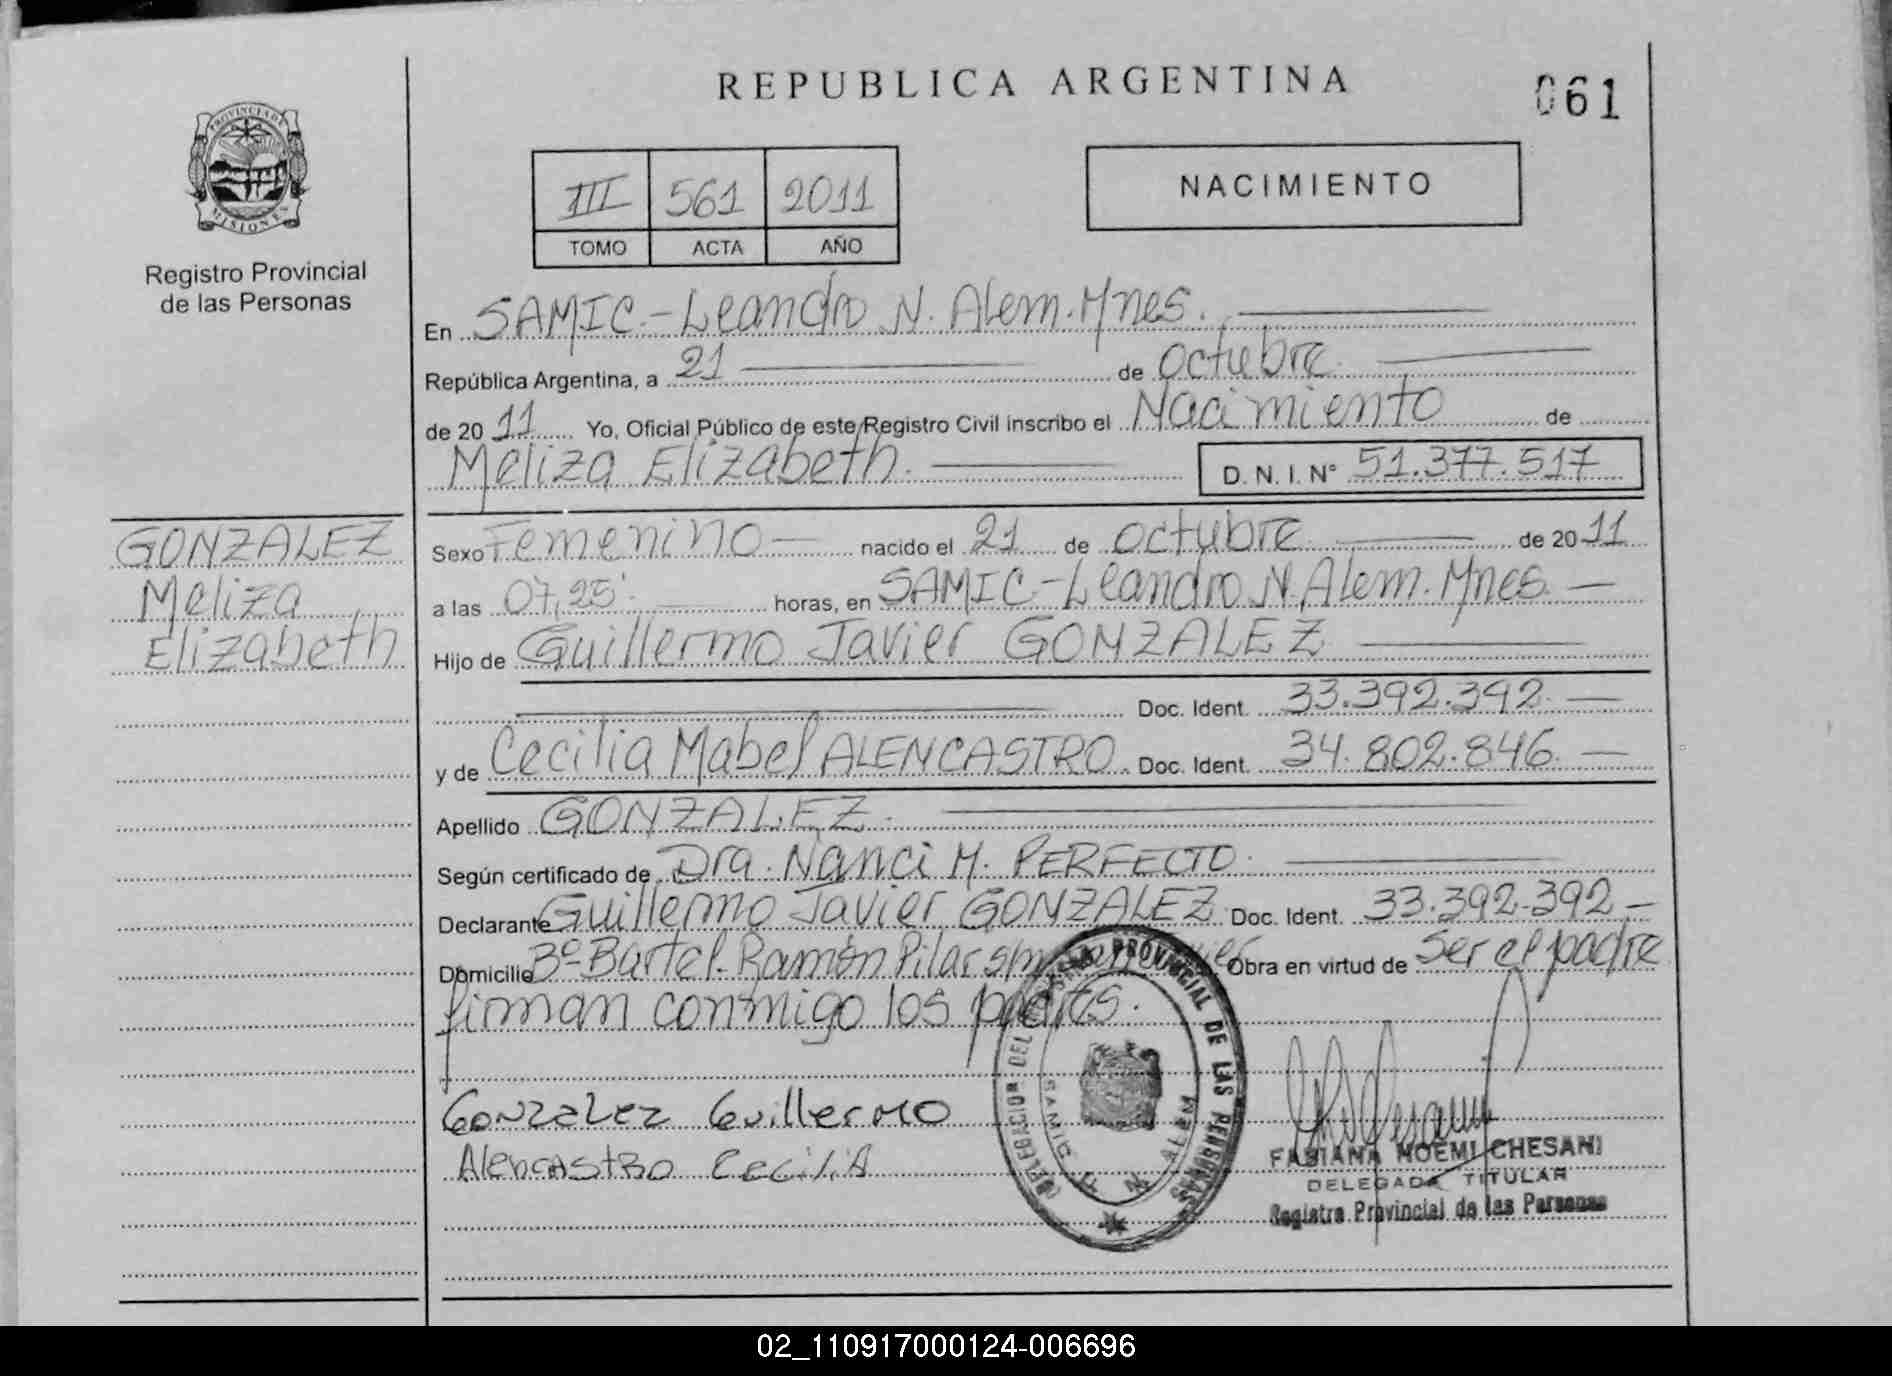 REPUBLICA ARGENTINA
061
PROVINCIA DE
MISIONES
Registro Provincial
de las Personas
III 561 2011
TOMO ACTA AÑO
NACIMIENTO
En SAMIC.-Leandro N. Alem.Mnes.
República Argentina, a 21 de octubre
de 2011 Yo, Oficial Público de este Registro Civil inscribo el Nacimiento de
Meliza Elizabeth. D. N. I. N° 51.377.517
GONZALEZ
Meliza
Elizabeth
Sexo Femenino nacido el 21 de octubre de 2011
a las 07,25' horas, en SAMIC-Leandro N. Alem. Mnes.
Hijo de Guillermo Javier GONZALEZ
Doc. Ident. 33.392.392
y de Cecilia Mabel ALENCASTRO. Doc. Ident. 34.802.846.
Apellido GONZALEZ.
Según certificado de Dra. Nanci M. PERFECTO.
Declarante Guillermo Javier GONZALEZ Doc. Ident. 33.392.392
Domicilio Bº Bartel. Ramón Pilar Obra en virtud de Ser el padre
firman conmigo los
Gonzalez Guillermo
Alencastro Cecilia
DELEGACION DEL PROVINCIAL DE LAS PERSONAS
SAMIC N ALEM
FABIANA NOEMI CHESANI
DELEGADA TITULAR
Registro Provincial de las Personas
02_110917000124-006696